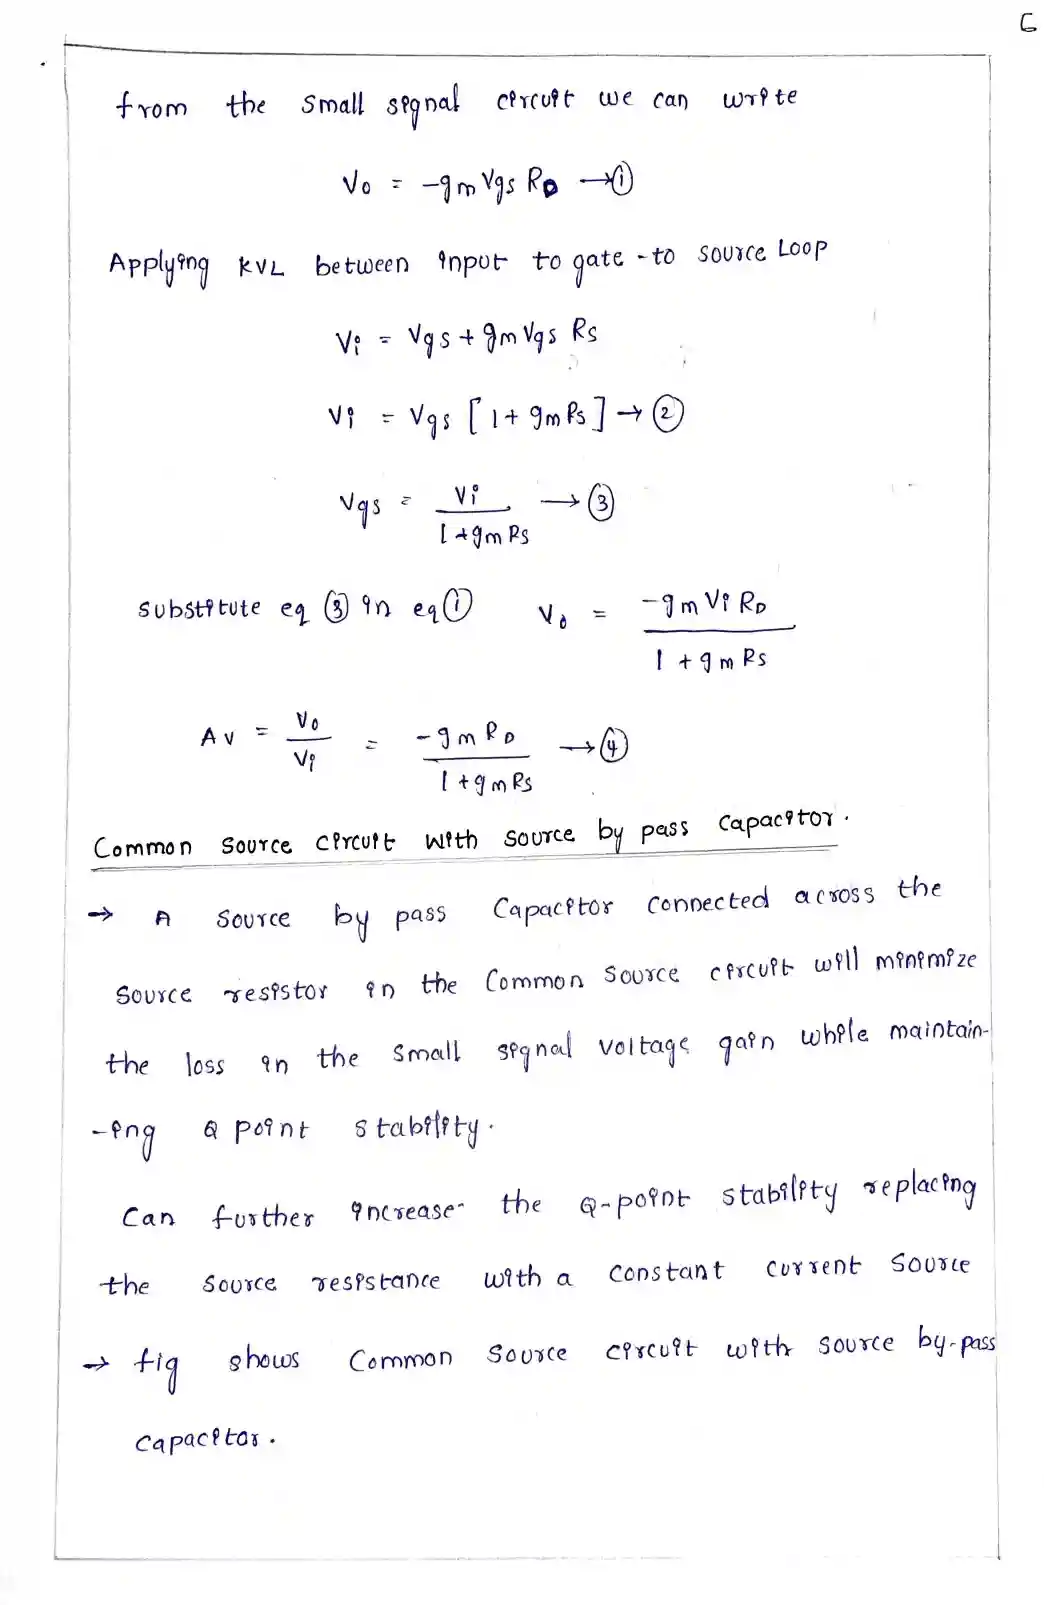 6
from the small signal circuit we can write
Vo = -gm Vgs RD → ①
Applying KVL between input to gate -to source Loop
Vi = Vgs + gm Vgs Rs
Vi = Vgs [1 + gm Rs] → ②
Vgs = Vi / 1 + gm Rs → ③
Substitute eq ③ in eq ① Vo = -gm Vi RD / 1 + gm Rs
Av = Vo / Vi = -gm RD / 1 + gm Rs → ④
Common Source circuit with source by pass capacitor.
→ A Source by pass Capacitor connected across the
Source resistor in the Common Source circuit will minimize
the loss in the small signal voltage gain while maintain-
-ing Q point stability.
Can further increase the Q-point stability replacing
the source resistance with a constant current source
→ fig shows Common Source circuit with source by-pass
capacitor.